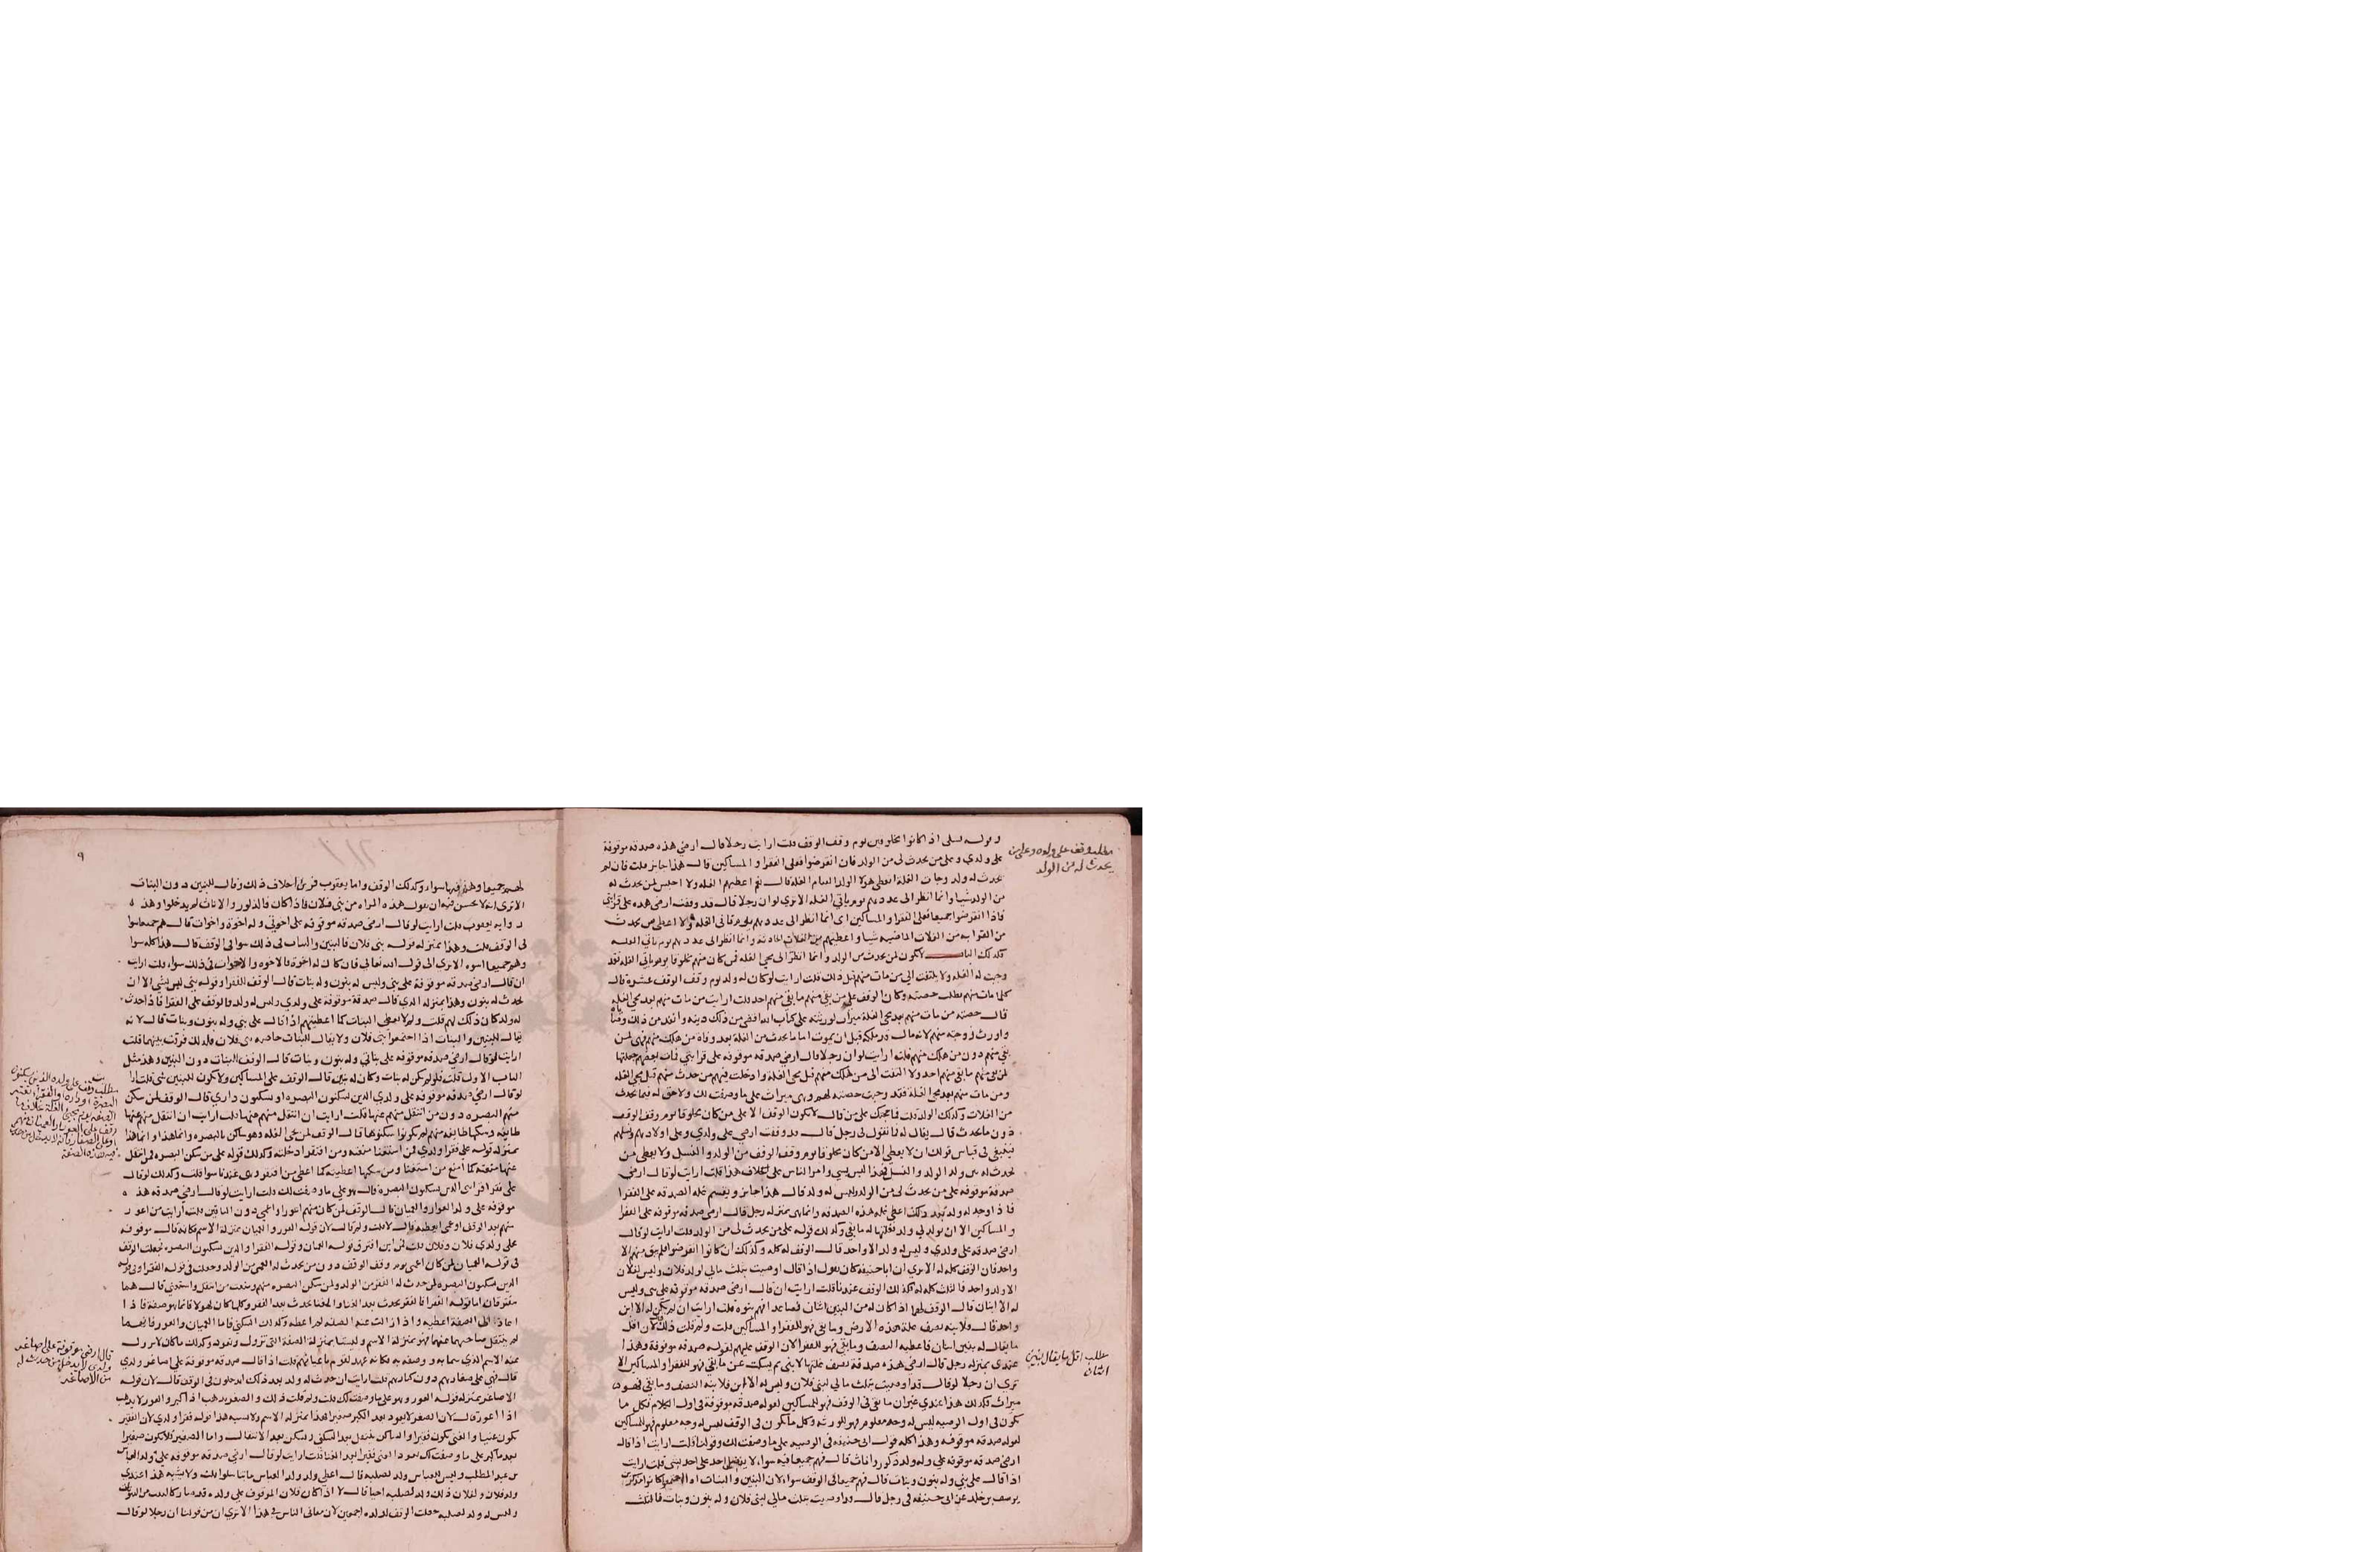 وقوله نسلي اذا كانوا مخلوقين يوم وقف الوقف قلت ارايت رجلا قال ارضي هذه صدقة موقوفة
على ولدي وعلى من يحدث لي من الولد فان انقرضوا فعلى الفقرا والمساكين قال هذا جايز قلت فان لم
يحدث له ولد وجات الغلة اتعطي هولا الولد العام الغلة قال نعم اعطيهم الغلة ولا احبس لمن يحدث له
من الولد شيا وانما انظر الى عددهم يوم ياتي الغلة الا ترى لو ان رجلا قال قد وقفت ارضي هذه على قرابتي
فاذا انقرضوا جميعا فعلى الفقرا والمساكين اي انما انظر الى عددهم يوم تاتي الغلة ولا اعطي من يحدث
من القرابه من الغلات الماضيه شيا واعطيهم من الغلات الحادثة وانما انظر الى عددهم يوم تاتي الغلة
وجبت له الغلة ولا يلتفت الى من مات منهم قبل ذلك قلت ارايت لو كان له ولد يوم وقف الوقف عشرة قال
كلما مات منهم بطلت حصته وكان الوقف على من بقي منهم ما بقي منهم احد قلت ارايت من مات منهم بعد مجي الغلة
قال حصته من مات منهم بعد مجي الغلة ميراث لورثته على كتاب الله اقضي من ذلك دينه وانفذ من ذلك وصاياه
واورث زوجته منهم لانه مال قد ملكه قبل ان يموت اما ما يحدث من الغلة بعد وفاة من هلك منهم فهي لمن
بقي منهم دون من هلك منهم قلت ارايت لو ان رجلا قال ارضي صدقة موقوفة على قرابتي فمات بعضهم جعلتها
لمن بقي منهم ما بقي منهم احد ولا التفت الى من هلك منهم قبل مجي الغلة وادخلت فيهم من حدث منهم قبل مجي الغلة
ومن مات منهم بعد مجي الغلة فقد وجبت حصته لهم وهي ميراث على ما وصفت لك ولا حق له فيما يحدث
من الغلات وكذلك الولد قلت فما حجتك على من قال لا يكون الوقف الا على من كان مخلوقا يوم وقف الوقف
دون ما يحدث قال يقال له ما تقول في رجل قال قد وقفت ارضي على ولدي وعلى اولادهم ونسلهم
فينبغي في قياس قولك ان لا يعطي الا من كان مخلوقا يوم وقف الوقف من الولد والنسل ولا يعطى من
يحدث له من ولد الولد والنسل فهذا ليس بشي وامر الناس على خلاف هذا قلت ارايت لو قال ارضي
صدقة موقوفة على من يحدث لي من الولد وليس له ولد قال هذا جايز ويقسم غلة الصدقة على الفقرا
فاذا وجد له ولد بعد ذلك اعطي غلة هذه الصدقة وانما هي بمنزلة رجل قال ارضي صدقة موقوفة على الفقرا
والمساكين الا ان يولد لي ولد فغلتها له ما بقي وكذلك قوله على من يحدث لي من الولد قلت ارايت لو قال
ارضي صدقة على ولدي وليس له ولد الا واحد قال الوقف له كله وكذلك ان كانوا انقرضوا فلم يبق منهم الا
واحد فان الوقف كله له الا ترى ان ابا حنيفة كان يقول اذا قال اوصيت بثلث مالي لولد فلان وليس لفلان
الا ولد واحد فالثلث كله له وكذلك الوقف عندنا قلت ارايت ان قال ارضي صدقة موقوفة على بني وليس
له الا ابنان قال الوقف لهما اذا كان له من البنين اثنان فصاعدا فهم بنوه قلت ارايت ان لم يكن له الا ابن
واحد قال ولابنه نصف غلة هذه الارض وما بقي فهو للفقرا والمساكين قلت ولم قلت ذلك قال لان اقل
ما يقال له بنين اثنان فاعطيه النصف وما بقي فهو للفقرا لان الوقف عليهم لقوله صدقة موقوفة وهذا
عندي بمنزلة رجل قال ارضي هذه صدقة نصف غلتها لابني ثم يسكت عن ما بقي فهو للفقرا والمساكين الا
ترى ان رجلا لو قال قد اوصيت بثلث مالي لبني فلان وليس له الا ابن فلابنه النصف وما بقي فهو
ميراث فكذلك هذا عندي غير ان ما بقي في الوقف فهو للمساكين لقوله صدقة موقوفة في اول الكلام فكل ما
يكون في اول الوصية ليس له وجه معلوم فهو للورثة وكل ما يكون في الوقف ليس له وجه معلوم فهو للمساكين
لقوله صدقة موقوفة وهذا كله قول ابي حنيفة في الوصية على ما وصفت لك وقولنا قلت ارايت اذا قال
ارضي صدقة موقوفة على ولدي وله ولد ذكور واناث قال فهم جميعا فيه سواء لا يفضل احد على احد بشي قلت ارايت
اذا قال على بني وله بنون وبنات قال فهم جميعا في الوقف سواء لان البنين والبنات اذا اجتمعوا كانوا ذكورا
يوسف بن خلد عن ابي حنيفة في رجل قال قد اوصيت بثلث مالي لبني فلان وله بنون وبنات فالثلث
مطلب وقف على ولده وعلى من
يحدث له من الولد
مطلب اقل ما يقال بنين
اثنان
٩
لهم جميعا وهم فيها سواء وكذلك الوقف واما يعقوب فروى خلاف ذلك وقال للبنين دون البنات
الا ترى انه لا يحسن فيه ان يقول هذه المراة من بني فلان فاذا كان فالذكور والاناث لم يدخلوا وهذه
رواية يعقوب قلت ارايت لو قال ارضي صدقة موقوفة على اخوتي وله اخوة واخوات قال هم جميعا سوا
في الوقف قلت وهذا بمنزلة قوله بني فلان فالبنين والبنات في ذلك سوا في الوقف قال هذا كله سوا
وهم جميعا اسوه الا ترى الى قول الله تعالى فان كان له اخوة فالاخوة والاخوات في ذلك سواء قلت ارايت
ان قال ارضي صدقة موقوفة على بني وليس له بنون وله بنات قال الوقف للفقرا وقوله بني ليس بشي الا ان
يحدث له بنون وهذا بمنزلة الذي قال صدقة موقوفة على ولدي وليس له ولد فالوقف على الفقرا فاذا حدث
له ولد كان ذلك لهم قلت ولم لا تعطي البنات كما اعطيتهم اذا قال على بني وله بنون وبنات قال لانه
يقال للبنين والبنات اذا اجتمعوا بني فلان ولا يقال للبنات خاصة بني فلان فلذلك فرقت بينهما قلت
ارايت لو قال ارضي صدقة موقوفة على بناتي وله بنون وبنات قال الوقف للبنات دون البنين وهذا مثل
الباب الاول قلت فلو لم يكن له بنات وكان له بنين قال الوقف على المساكين ولا يكون للبنين شي قلت ارايت
لو قال ارضي صدقة موقوفة على ولدي الذين يسكنون البصرة او يسكنون داري قال الوقف لمن سكن
منهم البصرة دون من انتقل منهم عنها قلت ارايت ان انتقل منهم عنها
طايفة وسكنها طايفة منهم لم يكونوا سكنوها قال الوقف لمن يجي الغلة وهو ساكن بالبصرة وانما هذا
بمنزلة قوله على فقرا ولدي فمن استغنا منعته ومن افتقر ادخلته وكذلك قوله على من سكن البصرة فمن انتقل
عنها منعته كما امنع من استغنا ومن سكنها اعطيته كما اعطي من افتقر وهي عندنا سوا قلت وكذلك لو قال
على فقرا قرابتي الذين يسكنون البصرة قال هو على ما وصفت لك قلت ارايت لو قال ارضي صدقة هذه
موقوفة على ولد العوار والعميان قال الوقف لمن كان منهم اعورا واعمى دون الباقين قلت ارايت من اعور
منهم بعد الوقف او عمي اتعطيه قال لا قلت ولم قال لان قوله العور والعميان بمنزلة الاسم فكانه قال موقوفة
على ولدي فلان وفلان قلت فمن اين افترق قوله العميان وقوله الفقرا والذين يسكنون البصرة فجعلت الوقف
في قوله العميان لمن كان اعمى يوم وقف الوقف دون من يحدث له العمى من الولد وجعلت في قوله الفقرا وفي قوله
الذين يسكنون البصرة لمن حدث له الفقر من الولد ولمن سكن البصرة منهم ومنعت من انتقل واستغنى قال هما
مفترقان اما قوله الفقرا فالفقر يحدث بعد الغنا والغنا يحدث بعد الفقر وكلما كان لهولا فانما هو صفة فاذا
لم ينتقل صاحبهما عنهما فهو بمنزلة الاسم وليستا بمنزلة الصفة التي تزول وتعود وكذلك ما كان لا يزول
قال فهي على صغارهم دون كبارهم قلت ارايت ان حدث له ولد بعد ذلك ايدخلون في الوقف قال لا لان قوله
الاصاغر بمنزلة قوله العور وهو على ما وصفت لك قلت ولم قلت ذلك والصغر يذهب اذا كبر والعور لا يذهب
اذا اعور قال لان الصغر لا يعود بعد الكبر صغيرا فهذا بمنزلة الاسم ولا يشبه هذا قوله فقرا ولدي لان الفقير
يكون غنيا والغني يكون فقيرا والساكن ينتقل بعد السكنى ويسكن بعد الانتقال واما الصغير فلا يكون صغيرا
بعد ما كبر على ما وصفت لك قلت ارايت لو قال ارضي صدقة موقوفة على ولد العباس
بن عبد المطلب وليس للعباس ولد لصلبه قال اعطي ولد ولد العباس ما تناسلوا قلت ولا يشبه هذا عندك
ولد فلان ولفلان ذلك ولد لصلبه احيا قال لا اذا كان فلان الموقوف على ولده
وليس له ولد لصلبه جعلت الوقف لولد ولده اجمعين لان معاني الناس في هذا الا ترى ان من قولنا ان رجلا لو قال
مطلب وقف على ولده الذين يسكنون
البصرة
قال ارضي موقوفة على اصاغر
ولدي لا يدخل من حدث له
من الاصاغر